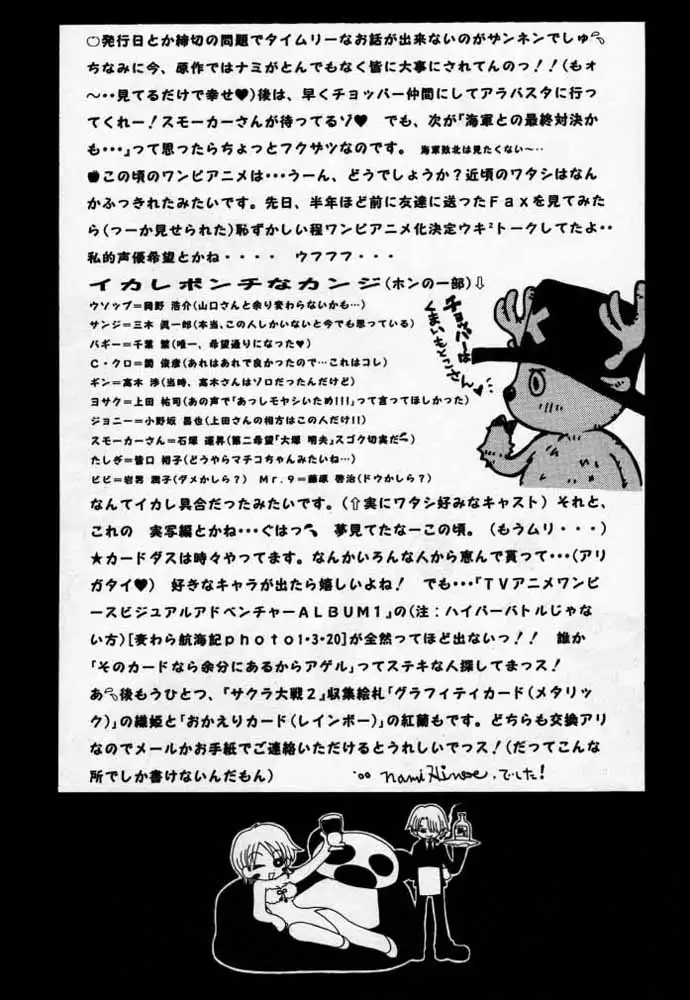 ○発行日とか締切の問題でタイムリーなお話が出来ないのがザンネンでしゅ
ちなみに今、原作ではナミがとんでもなく皆に大事にされてんのっ!!(もォ
～‥見てるだけで幸せ♥)後は、早くチョッパー仲間にしてアラバスタに行っ
てくれー!スモーカーさんが待ってるゾ♥ でも、次が『海軍との最終対決か
も‥･』って思ったらちょっとフクザツなのです。 海軍敗北は見たくない～‥
この頃のワンピアニメは‥･うーん、どうでしょうか?近頃のワタシはなん
かふっきれたみたいです。先日、半年ほど前に友達に送ったFaxを見てみた
ら(つーか見せられた)恥ずかしい程ワンピアニメ化決定ウキ²トークしてたよ‥
私的声優希望とかね・・・・ ウフフフ・・・
イカレポンチなカンジ(ホンの一部)⇩
ウソップ=岡野 浩介(山口さんと余り変わらないかも…)
サンジ=三木 眞一郎(本当、この人しかいないと今でも思っている)
バギー=千葉 繁(唯一、希望通りになった♥)
C・クロ=関 俊彦(あれはあれで良かったので…これはコレ)
ギン=高木 渉(当時、高木さんはゾロだったんだけど)
ヨサク=上田 祐司(あの声で「あっしモヤシいため!!!」って言ってほしかった)
ジョニー=小野坂 昌也(上田さんの相方はこの人だけ!!)
スモーカーさん=石塚 運昇(第二希望「大塚 明夫」スゴク切実だ)
たしぎ=皆口 裕子(どうやらマチコちゃんみたいね…)
ビビ=岩男 潤子(ダメかしら?) Mr.9=藤原 啓治(ドウかしら?)
チョッパーは
くまいもとこさん♥
なんてイカレ具合だったみたいです。(⇧実にワタシ好みなキャスト) それと、
これの 実写編とかね‥･ぐはっ 夢見てたなーこの頃。(もうムリ・・・)
★カードダスは時々やってます。なんかいろんな人から恵んで貰って‥･(アリ
ガタイ♥) 好きなキャラが出たら嬉しいよね! でも‥･「TVアニメワンピ
ースビジュアルアドベンチャーALBUM1」の(注：ハイパーバトルじゃな
い方)[麦わら航海記photo1･3･20]が全然ってほど出ないっ!! 誰か
「そのカードなら余分にあるからアゲル」ってステキな人探してまっス!
あ 後もうひとつ、「サクラ大戦2」収集絵札「グラフィティカード(メタリッ
ク)」の織姫と「おかえりカード(レインボー)」の紅蘭もです。どちらも交換アリ
なのでメールかお手紙でご連絡いただけるとうれしいでっス!(だってこんな
所でしか書けないんだもん) nami Hinose.でした!